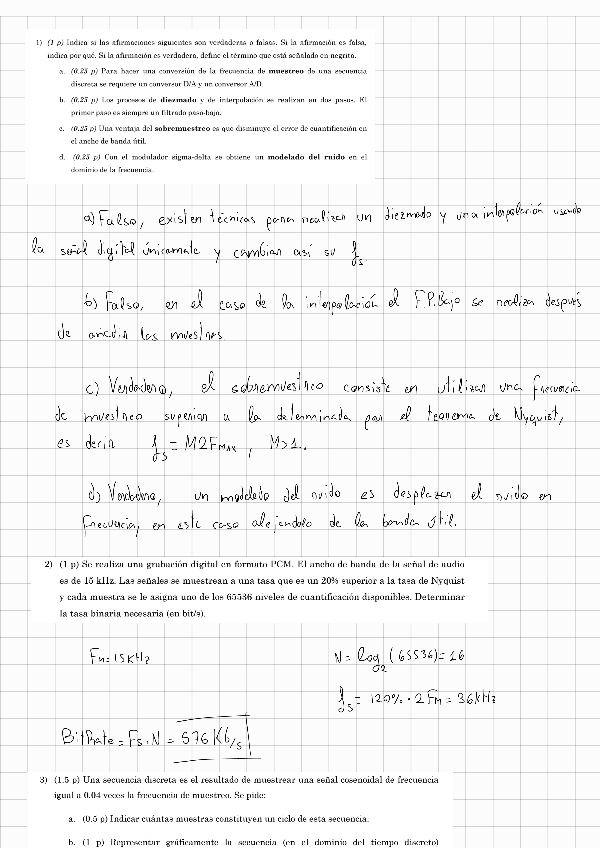 1) (1 p) Indica si las afirmaciones siguientes son verdaderas o falsas. Si la afirmación es falsa,
indica por qué. Si la afirmación es verdadera, define el término que está señalado en negrita.
a. (0.25 p) Para hacer una conversión de la frecuencia de muestreo de una secuencia
discreta se requiere un conversor D/A y un conversor A/D.
b. (0.25 p) Los procesos de diezmado y de interpolación se realizan en dos pasos. El
primer paso es siempre un filtrado paso-bajo.
c. (0.25 p) Una ventaja del sobremuestreo es que disminuye el error de cuantificación en
el ancho de banda útil.
d. (0.25 p) Con el modulador sigma-delta se obtiene un modelado del ruido en el
dominio de la frecuencia.
a) Falso, existen técnicas para realizar un diezmado y una interpolación usando
la señal digital únicamente y cambiar así su fs.
b) Falso, en el caso de la interpolación el F.P.Bajo se realiza después
de añadir las muestras.
c) Verdadero, el sobremuestreo consiste en utilizar una frecuencia
de muestreo superior a la determinada por el teorema de Nyquist,
es decir fs = M2FMAX , M>1.
d) Verdadero, un modelado del ruido es desplazar el ruido en
frecuencia, en este caso alejandolo de la banda útil.
2) (1 p) Se realiza una grabación digital en formato PCM. El ancho de banda de la señal de audio
es de 15 kHz. Las señales se muestrean a una tasa que es un 20% superior a la tasa de Nyquist
y cada muestra se le asigna uno de los 65536 niveles de cuantificación disponibles. Determinar
la tasa binaria necesaria (en bit/s).
FM=15KHz N= log2 (65536)= 16
fs = 120% · 2 FM = 36KHz
BitRate = Fs · N = 576 Kb/s
3) (1.5 p) Una secuencia discreta es el resultado de muestrear una señal cosenoidal de frecuencia
igual a 0.04 veces la frecuencia de muestreo. Se pide:
a. (0.5 p) Indicar cuántas muestras constituyen un ciclo de esta secuencia.
b. (1 p) Representar gráficamente la secuencia (en el dominio del tiempo discreto)